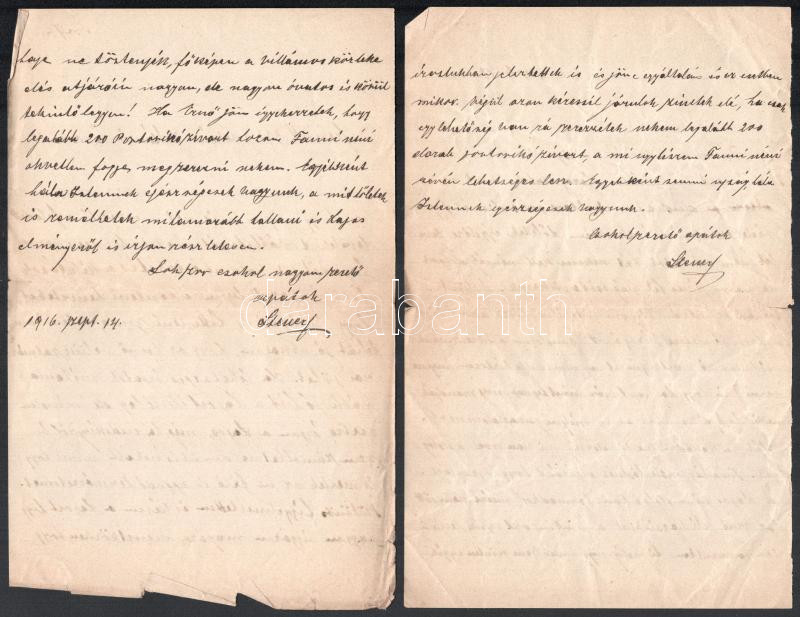 baja ne történjék, főképen a villamos közleke
dés útjáróin nagyon, de nagyon óvatos és körül
tekintő legyen! Ha Ernő jön igyekezzetek, hogy
legalább 200 Portorikó szivart hozzon Fanni néni
okvetlen fogja megszerezni nekem. Egyébként
hála Istennek egészségesek vagyunk, a mit tőletek
is remélhetek mihamarább hallani és Lajos
élményeiről is írjon részletesen.
Sokszor csókol nagyon szerető
apátok
1916. szept. 14.
is és jön egyáltalán és ez esetben
mikor. Végül azon kéréssel járulok elé, ha csak
egy lehetőség van rá szerezzétek nekem legalább 200
darab portorikó szivart, a mi ugyhiszem Fanni néni
révén lehetséges lesz. Egyébként semmi ujság hála
Istennek egészségesek vagyunk.
Csókol szerető apátok
darabanth